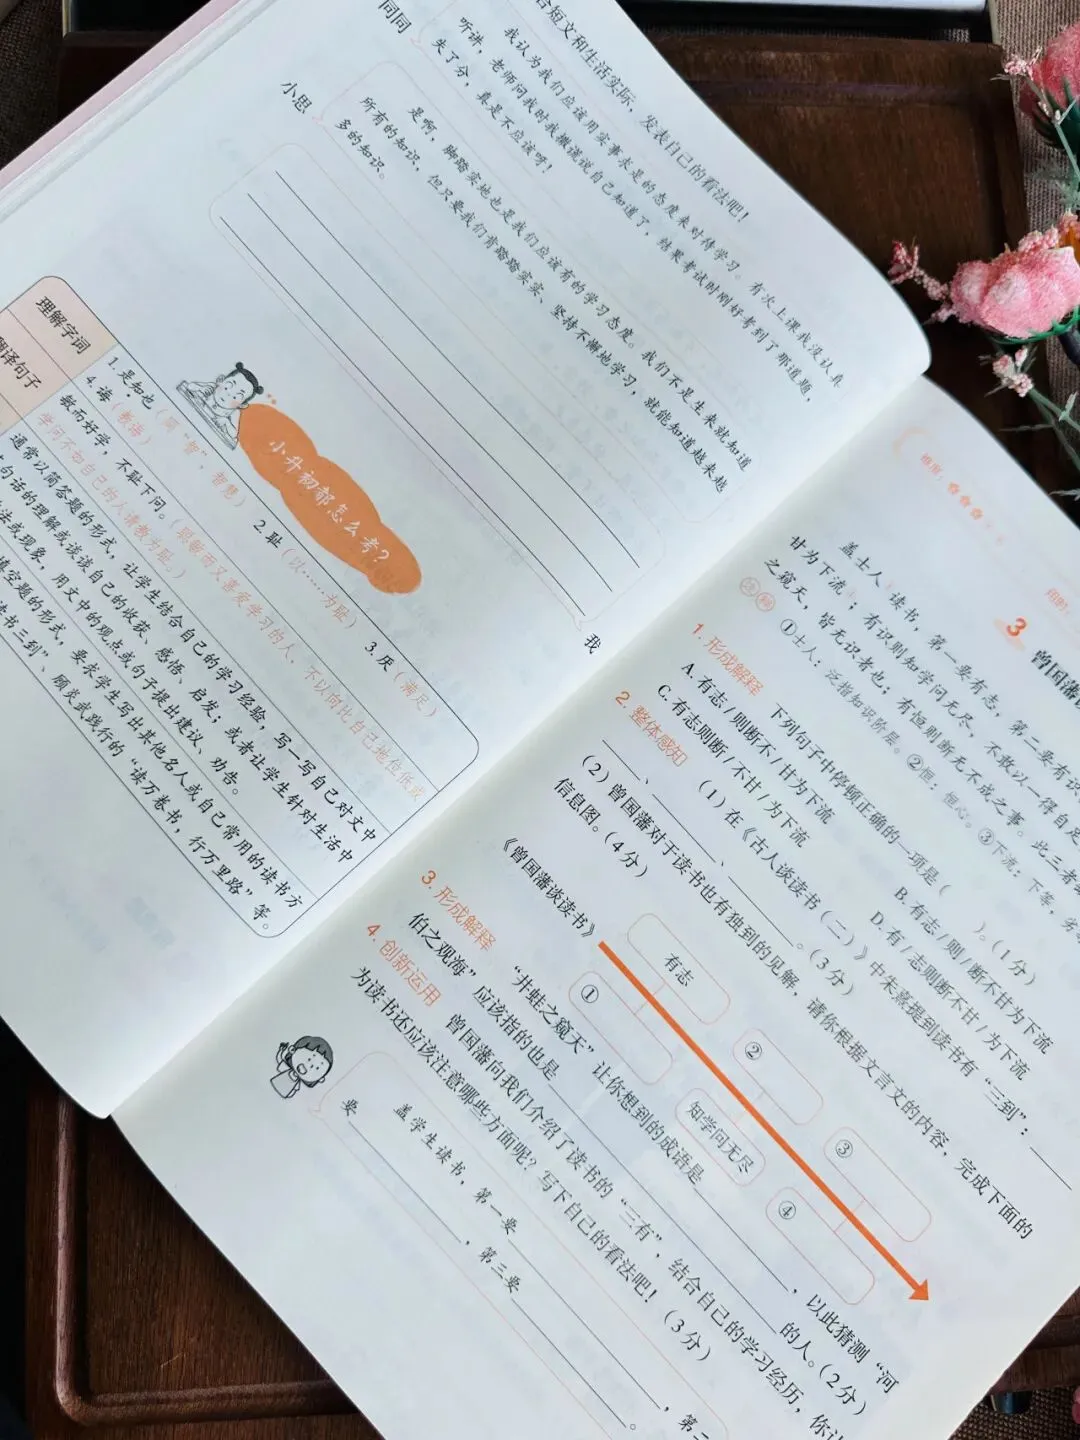 合短文和生活实际，发表自己的看法吧！
同同
我认为我们应该用实事求是的态度来对待学习。有次上课我没认真
听讲，老师问我时我撒谎说自己知道了，结果考试时刚好考到了那道题，
失了分，真是不应该呀！
小思
是啊，脚踏实地也是我们应该有的学习态度。我们不是生来就知道
所有的知识，但只要我们肯踏踏实实、坚持不懈地学习，就能知道越来越
多的知识。
我
小升初都怎么考？
理解字词
1.是知也（同“智”，智慧） 2.耻（以……为耻） 3.厌（满足）
4.诲（教诲）
翻译句子
敏而好学，不耻下问。（聪敏而又喜爱学习的人，不以向比自己地位低或
学问不如自己的人请教为耻。）
通常以简答题的形式，让学生结合自己的学习经验，写一写自己对文中
句话的理解或谈谈自己的收获、感悟、启发；或者让学生针对生活中
法或现象，用文中的观点或句子提出建议、劝告。
填空题的形式，要求学生写出其他名人或自己常用的读书方
读书三到”、顾炎武践行的“读万卷书，行万里路”等。
3 曾国藩
盖士人读书，第一要有志，第二要有识
甘为下流；有识则知学问无尽，不敢以一得自足
之窥天，皆无识者也；有恒则断无不成之事。此三者
注释 ①士人：泛指知识阶层。②恒：恒心。③下流：下等，劣
1. 形成解释 下列句子中停顿正确的一项是（ ）。（1分）
A. 有志/则断不/甘为下流 B. 有志/则/断不甘为下流
C. 有志则断/不甘/为下流 D. 有/志则断不甘/为下流
2. 整体感知 （1）在《古人谈读书（二）》中朱熹提到读书有“三到”：
、 、 。（3分）
（2）曾国藩对于读书也有独到的见解，请你根据文言文的内容，完成下面的
信息图。（4分）
《曾国藩谈读书》
有志
①
②
知学问无尽
③
④
3. 形成解释 “井蛙之窥天”让你想到的成语是 ，以此猜测“河
伯之观海”应该指的也是 的人。（2分）
4. 创新运用 曾国藩向我们介绍了读书的“三有”，结合自己的学习经历，你认
为读书还应该注意哪些方面呢？写下自己的看法吧！（3分）
盖学生读书，第一要 ，第二
要 ，第三要 。